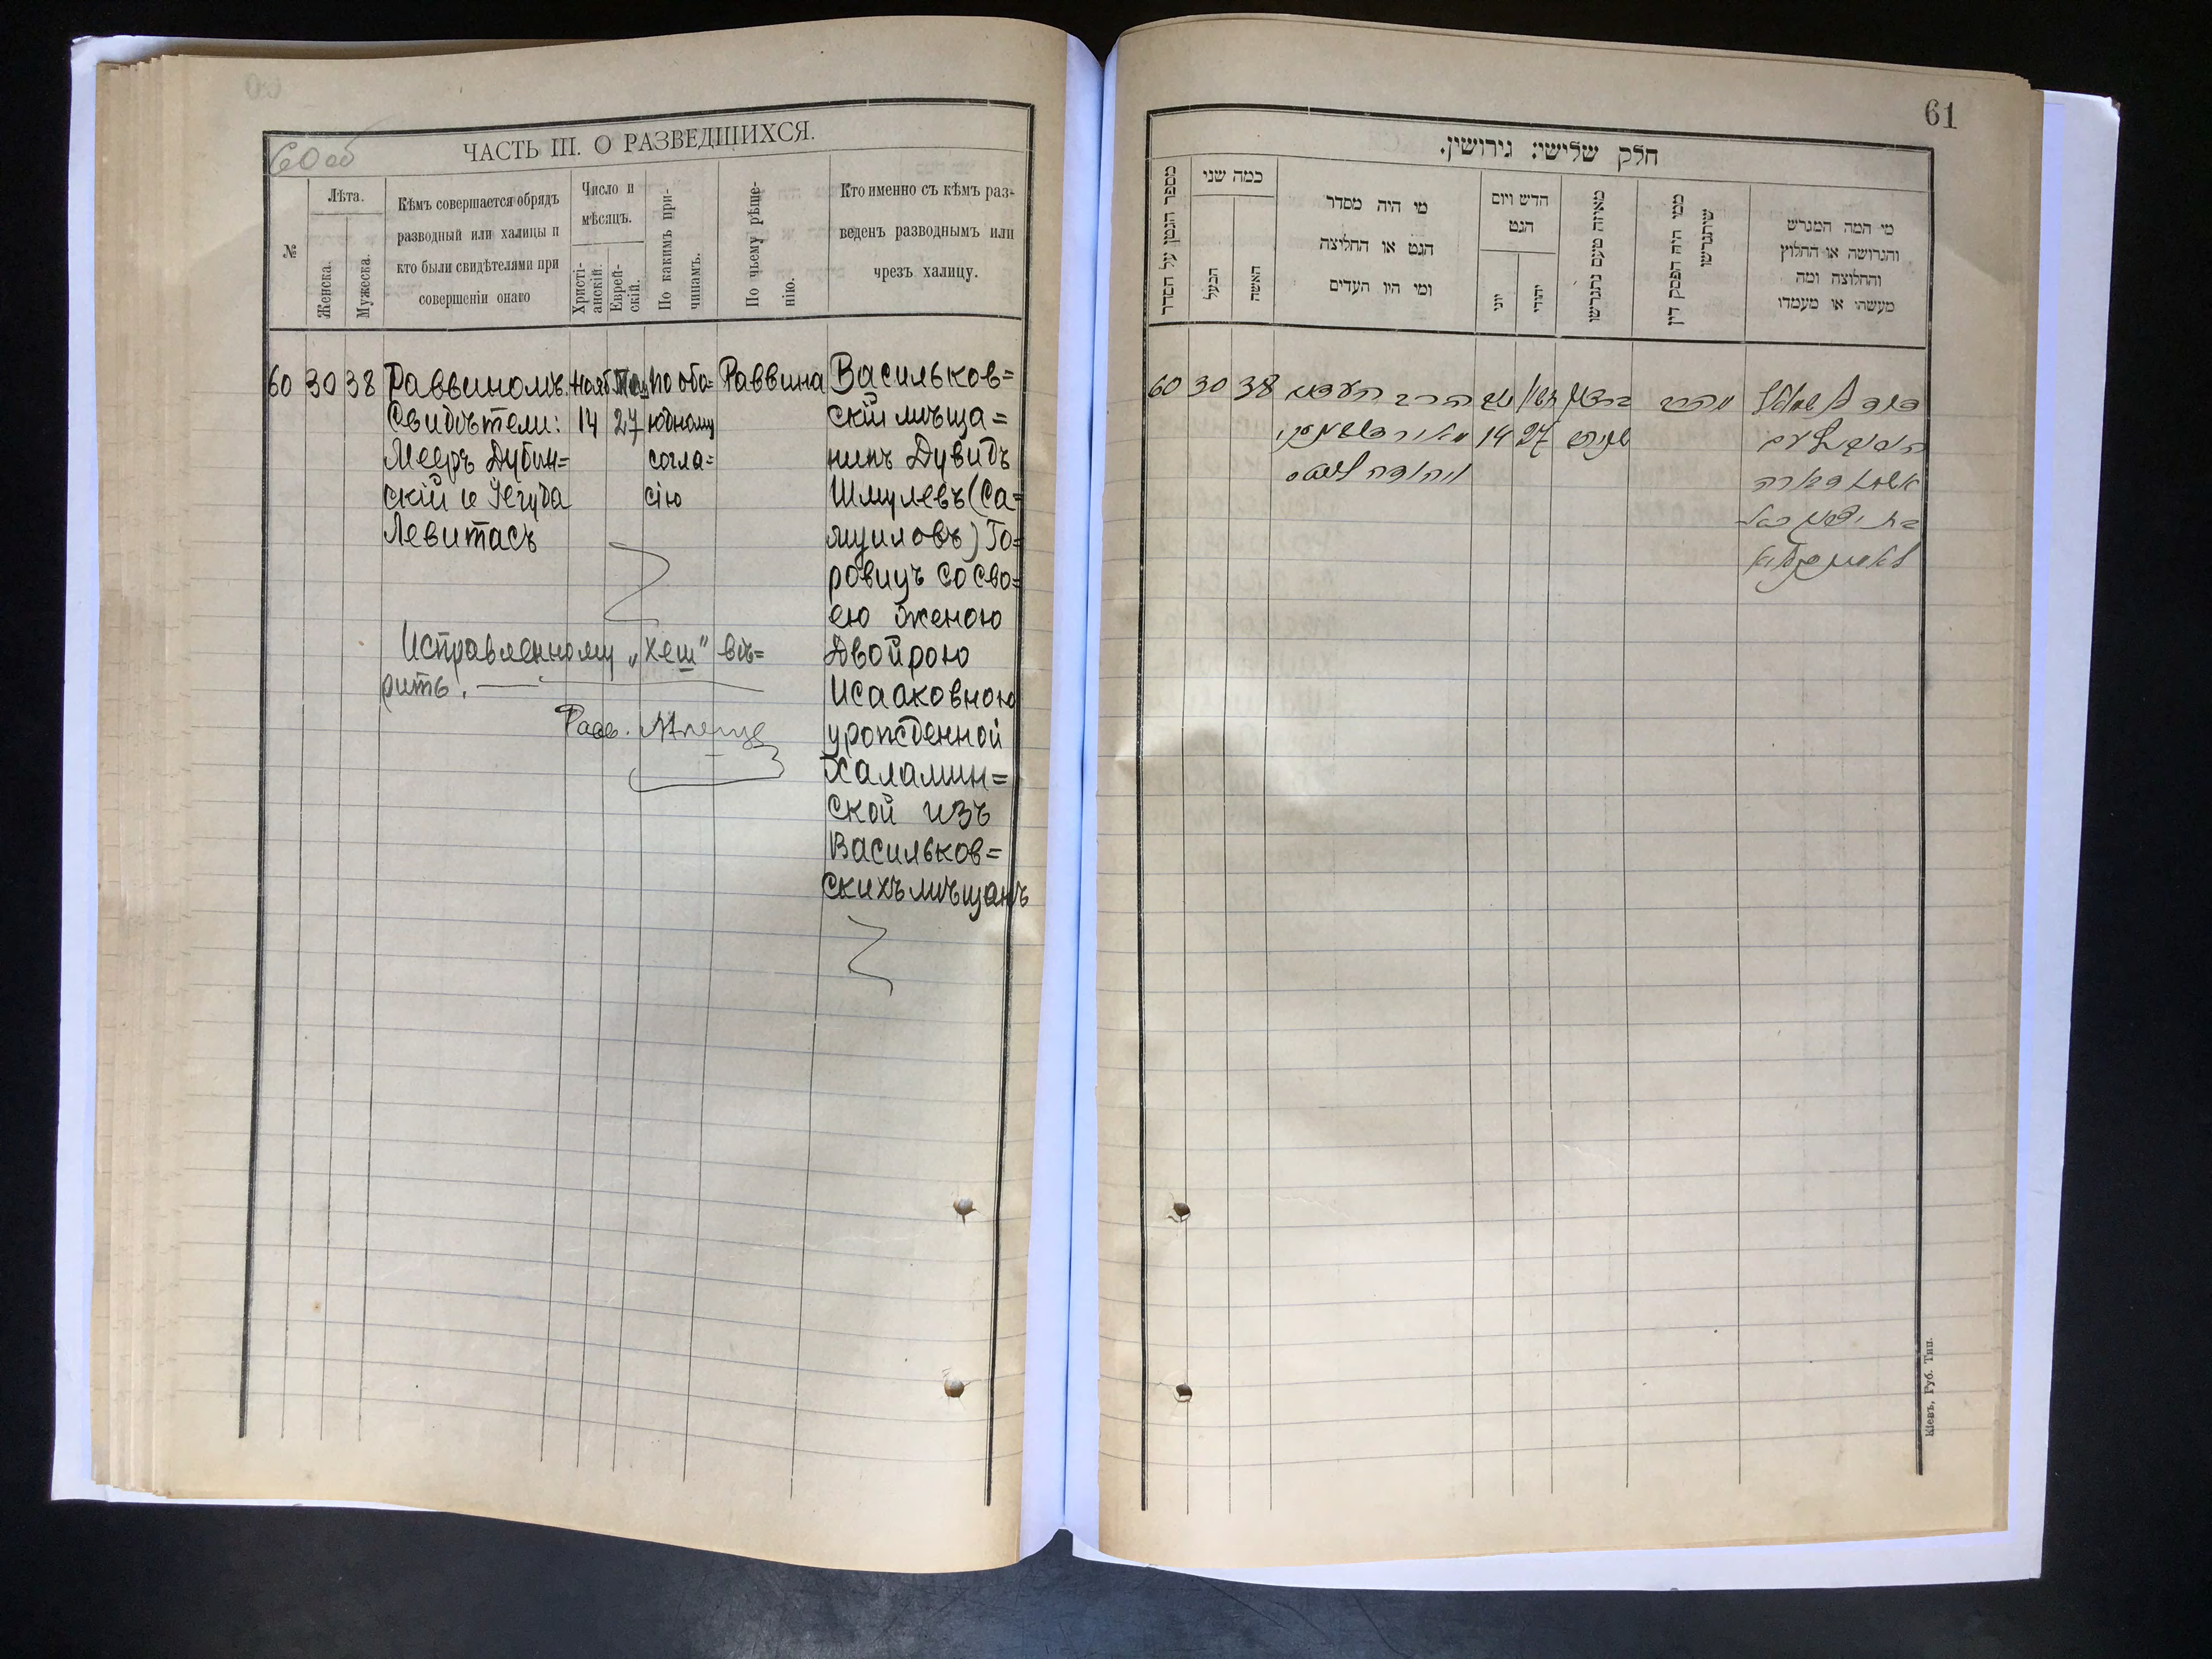 60 об
ЧАСТЬ III. О РАЗВЕДЩИХСЯ.
№
Лѣта.
Женска.
Мужеска.
Кѣмъ совершается обрядъ
разводный или халицы и
кто были свидѣтелями при
совершеніи онаго
Число и
мѣсяцъ.
Христі-
анскій.
Еврей-
скій.
По какимъ при-
чинамъ.
По чьему рѣше-
нію.
Кто именно съ кѣмъ раз-
веденъ разводнымъ или
чрезъ халицу.
60 30 38
Раввиномъ.
Свидѣтели:
Мееръ Дубин=
скій и Іегуда
Левитасъ
Нояб
14
27
по обо=
юдному
согла=
сію
Раввина
Васильков=
скій мѣща=
нинъ Дувидъ
Шмулевъ (Са=
муиловъ) Го=
ровицъ со сво=
ею женою
Двойрою
Исааковною
урожденной
Халамин=
ской изъ
Васильков=
скихъ мѣщанъ
Исправленному „Хеш" вѣ=
рить.
Равв.
61
חלק שלישי: גירושין.
מספר הגטן על הסדר
כמה שני
הבעל
האשה
מי היה מסדר
הגט או החליצה
ומי היו העדים
חדש ויום
הגט
יוני
יהודי
מאיזה טעם נתגרשו
ממי היה הפסק דין
שיתגרשו
מי המה המגרש
והגרושה או החלוץ
והחלוצה ומה
מעשהו או מעמדו
60 30 38
14 27
Кіевъ, Руб. Тип.